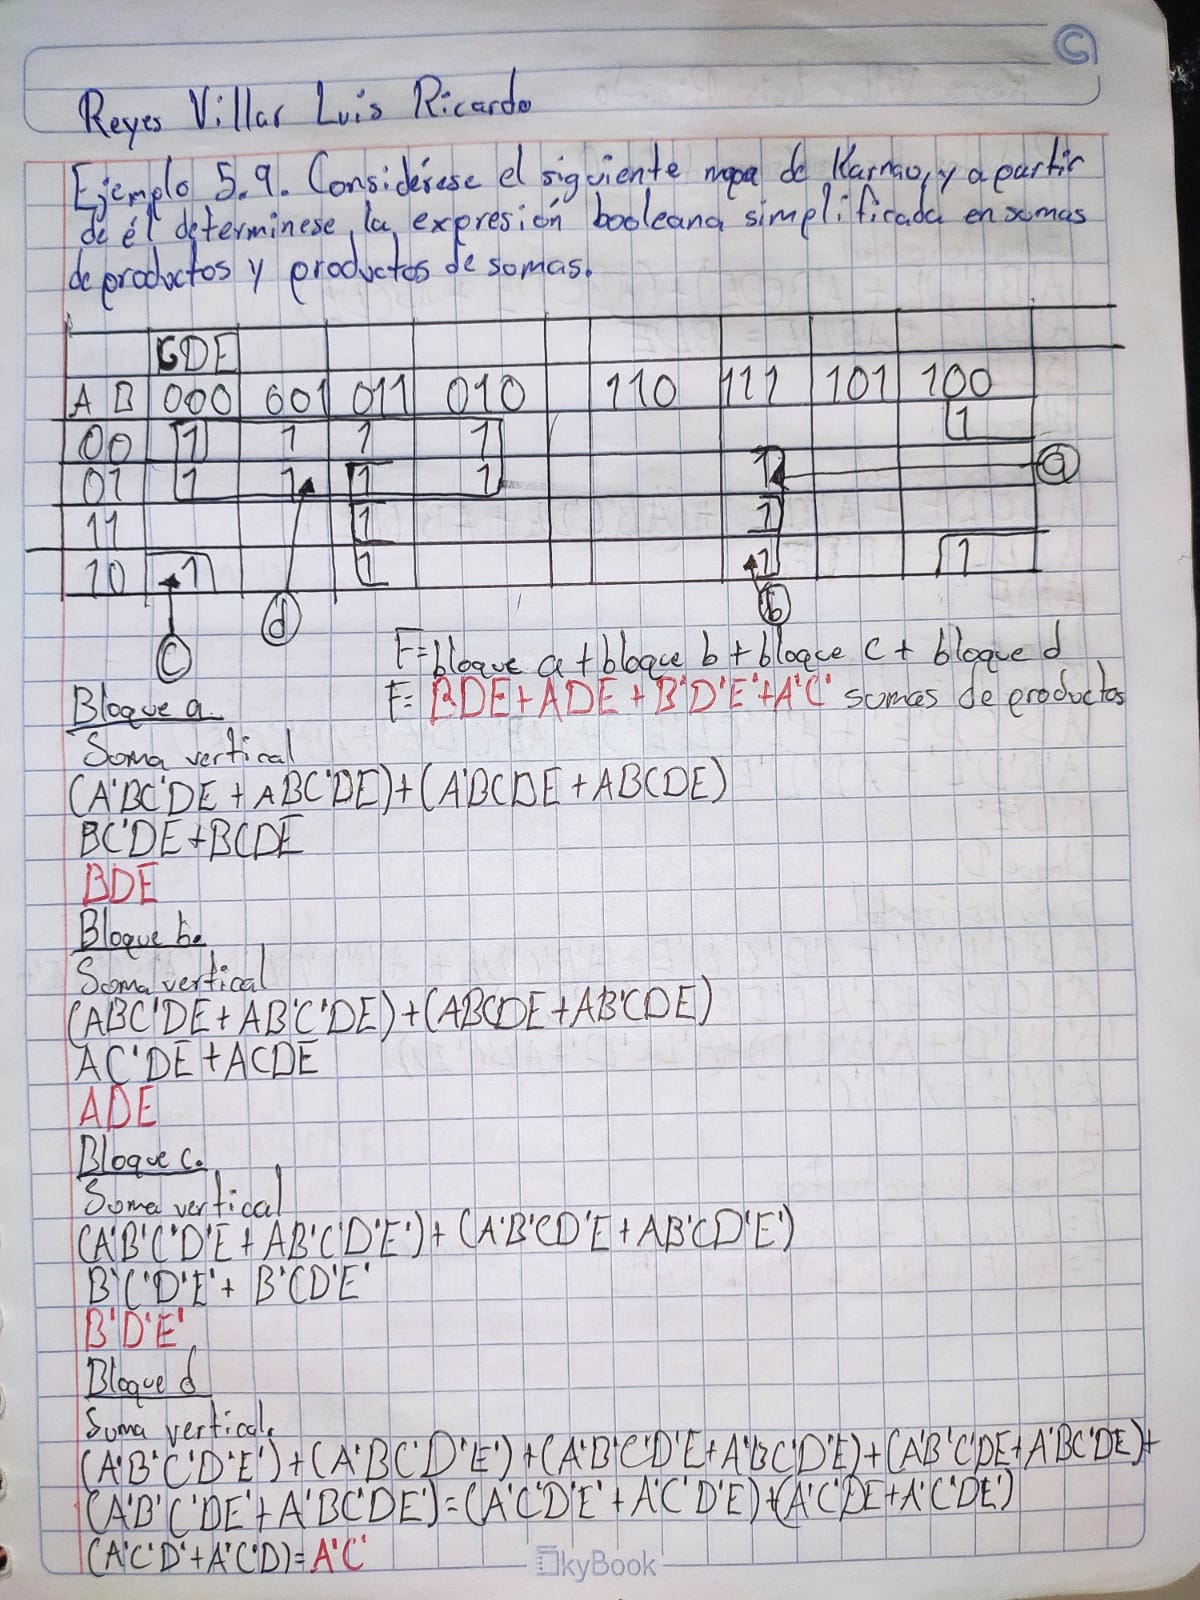 Reyes Villar Luis Ricardo
Ejemplo 5.9. Considérese el siguiente mapa de Karnao, y a partir
de él determinese la expresión booleana simplificada en sumas
de productos y productos de sumas.
CDE
A B 000 001 011 010 110 111 101 100
00 1 1 1 1 1
01 1 1 1 1 1 a
11 1 1
10 1 1 1 1
c d b
F= bloque a + bloque b + bloque c + bloque d
F= BDE + ADE + B'D'E' + A'C' sumas de productos
Bloque a.
Suma vertical
(A'BC'DE + ABC'DE) + (A'BCDE + ABCDE)
BC'DE + BCDE
BDE
Bloque b.
Suma vertical
(ABC'DE + AB'C'DE) + (ABCDE + AB'CDE)
AC'DE + ACDE
ADE
Bloque c.
Suma vertical
(A'B'C'D'E + AB'C'D'E') + (A'B'CD'E + AB'CD'E')
B'C'D'E' + B'CD'E'
B'D'E'
Bloque d
Suma vertical.
(A'B'C'D'E') + (A'BC'D'E') + (A'B'C'D'E + A'BC'D'E) + (A'B'C'DE + A'BC'DE) +
(A'B'C'DE' + A'BC'DE') = (A'C'D'E' + A'C'D'E) + (A'C'DE + A'C'DE')
(A'C'D' + A'C'D) = A'C'
SkyBook